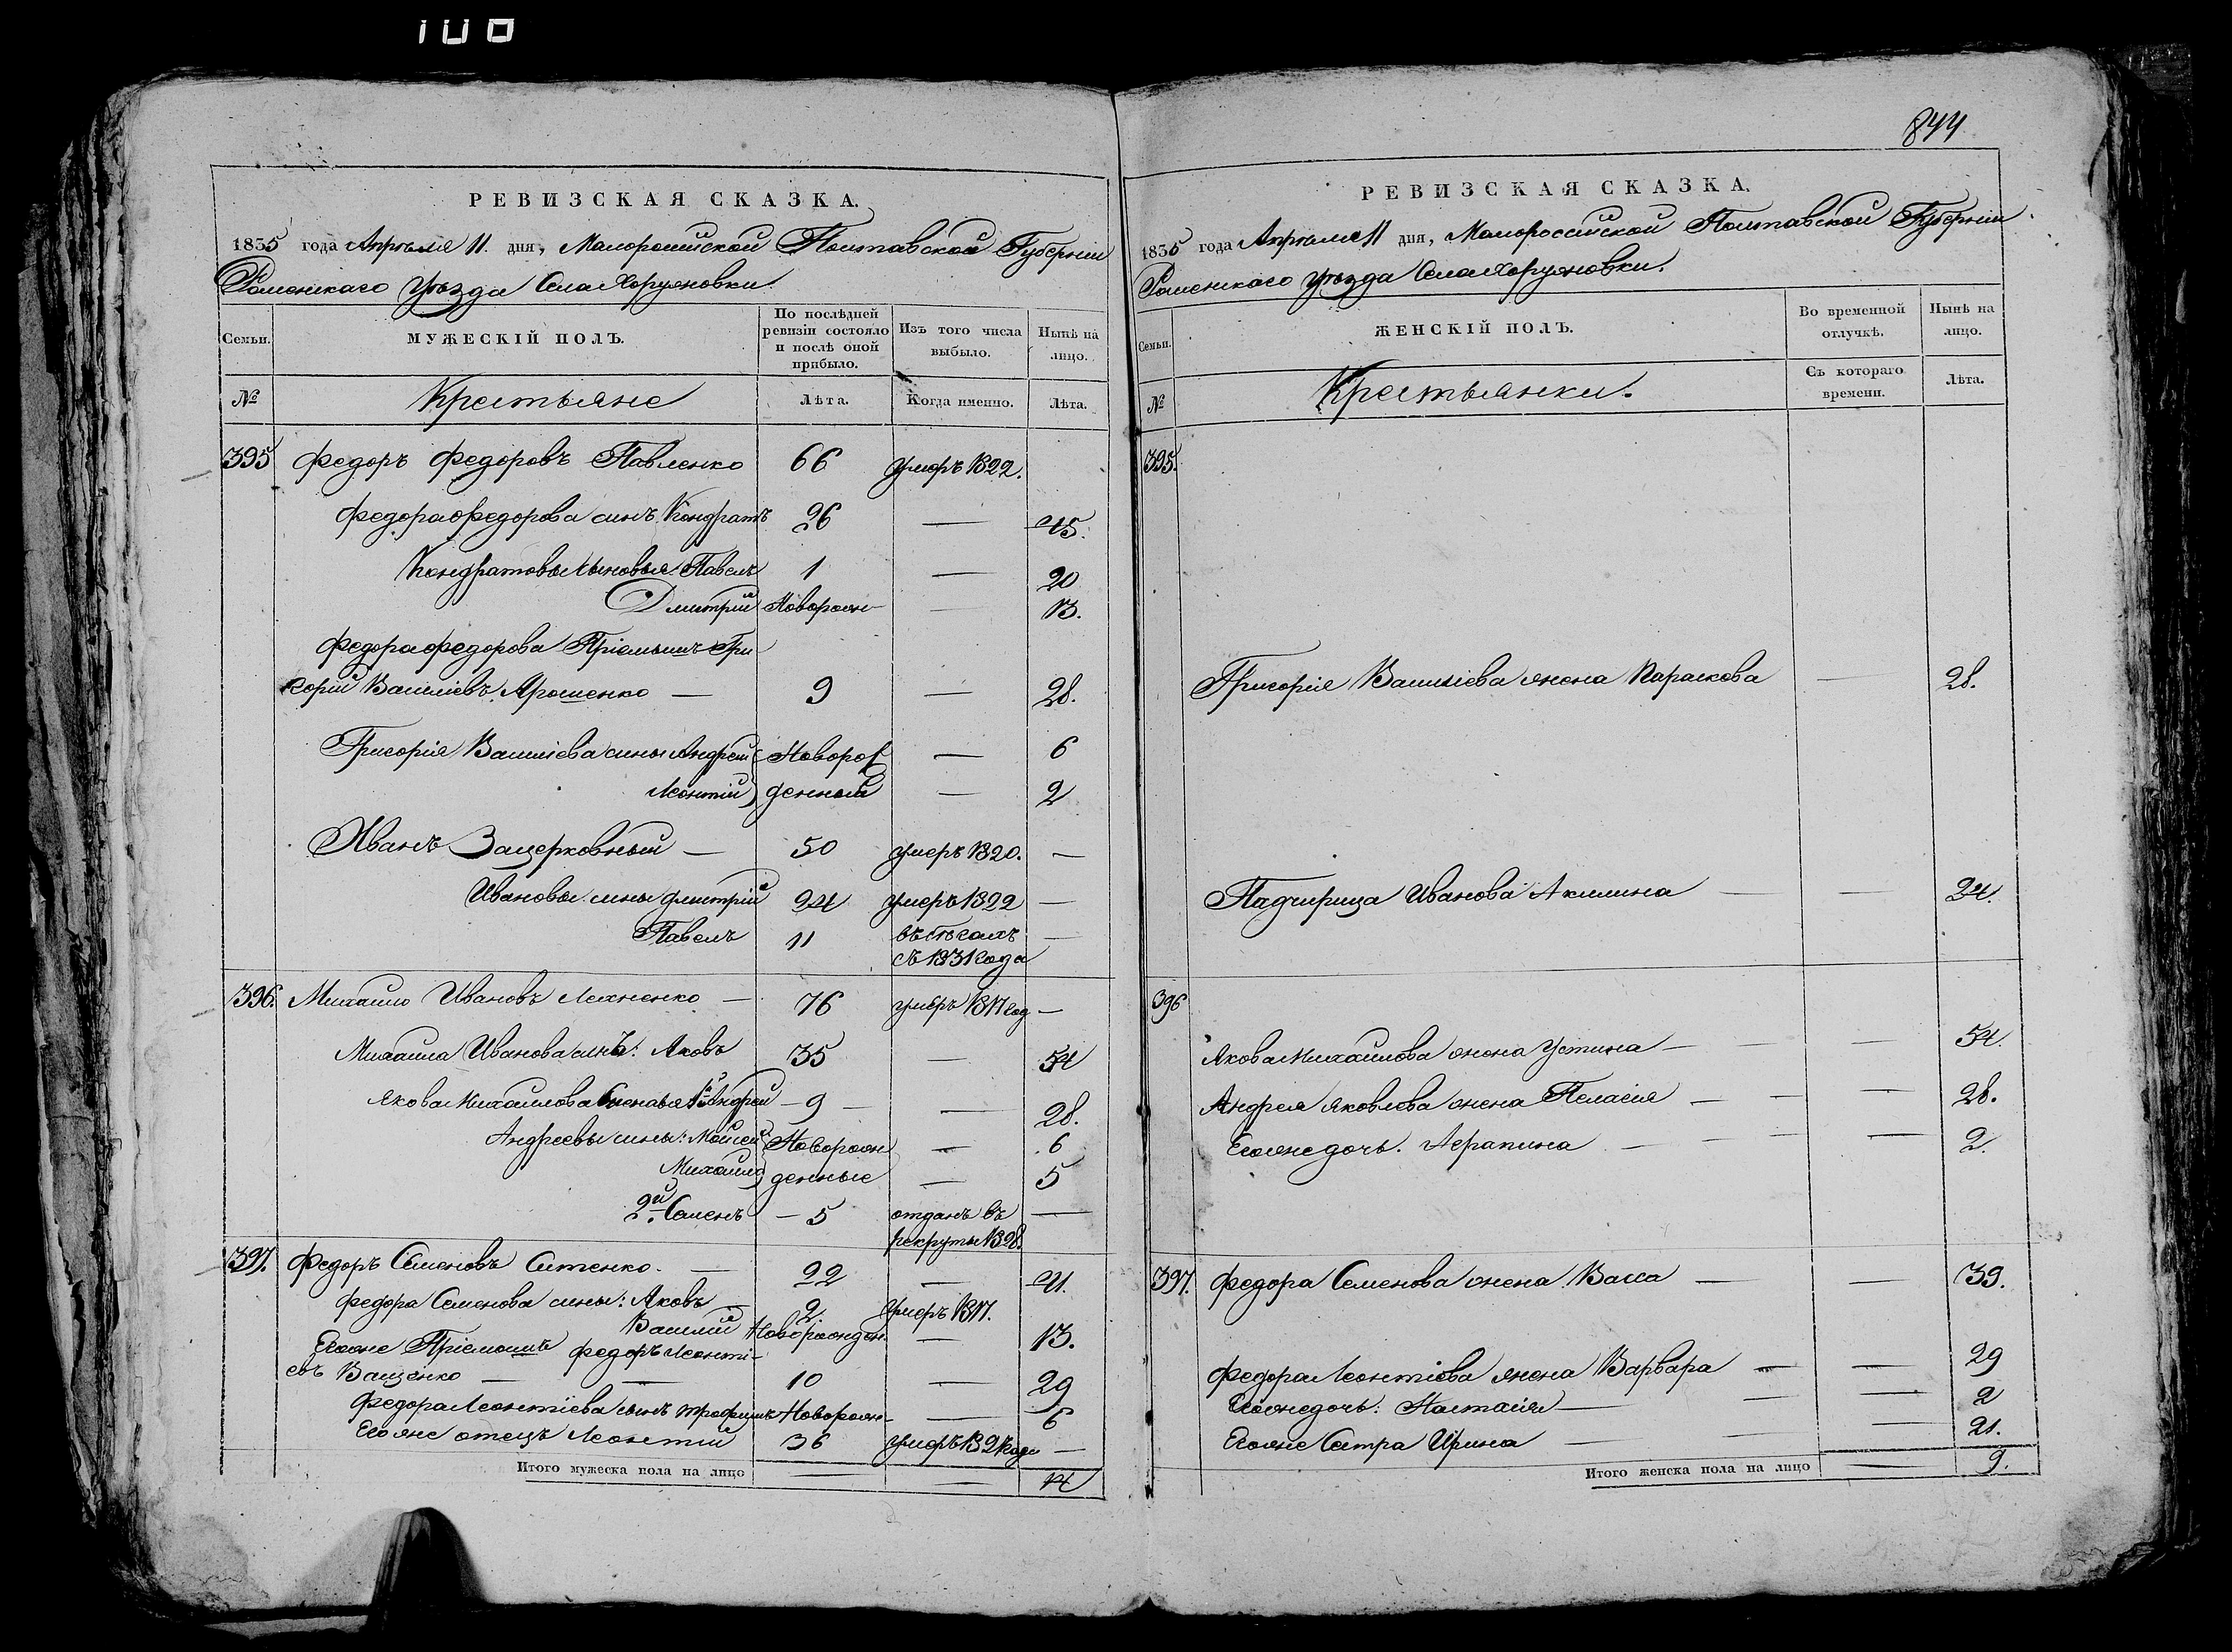 100
РЕВИЗСКАЯ СКАЗКА.
1835 года Апрѣля 11. дня, Малоросійской Полтавской Губерніи
Роменскаго уѣзда Села Хоружовки.
Семьи. МУЖЕСКІЙ ПОЛЪ. По послѣдней ревизіи состояло и послѣ оной прибыло. Изъ того числа выбыло. Нынѣ на лицо.
№ Крестьяне Лѣта. Когда именно. Лѣта.
395 Федоръ Федоровъ Павленко 66 умеръ 1822.
Федора Федорова синъ Кондратъ 26 — 45.
Кондратовы сыновья Павелъ 1 — 20
Дмитрий Новорож — 13.
Федора Федорова Пріемышъ Гри
горій Василіевъ Ярошенко — 9 — 28.
Григорія Василіева сины Андрей Новорож — 6
Леонтій денный — 2
Иванъ Зацерковный — 50 умеръ 1820. —
Ивановы сины Дмитрій 24 умеръ 1822 —
Павелъ 11 въ бѣгахъ —
съ 1831 года
396. Михаило Ивановъ Лехненко — 76 умеръ 1817 год —
Михаила Иванова синъ: Яковъ 35 — 54
Якова Михайлова 1й Андрей — 9 — — 28.
Андреевы сины: Мойсей Новорож — 6
Михаила денные — 5
2й Семенъ — 5 отданъ въ —
рекруты 1828.
397. Федоръ Семеновъ Ситенко. — 22 — 41.
Федора Семенова сины: Яковъ — 2 умеръ 1817.
Василий Новорожден. — 13.
Егоже Пріемышъ Федоръ Леонті-
евъ Ващенко — — 10 — 29
Федора Леонтіева сынъ Трофимъ Новорож — 6
Егоже отецъ Леонтий 36 умеръ года —
Итого мужеска пола на лицо — — 14
844
РЕВИЗСКАЯ СКАЗКА.
1835 года Апрѣля 11 дня, Малороссийской Полтавской Губерніи
Роменскаго уѣзда Села Хоружовки.
Семьи. ЖЕНСКІЙ ПОЛЪ. Во временной отлучкѣ. Нынѣ на лицо.
№ Крестьянки. Съ котораго времени. Лѣта.
395.
Григорія Василіева жена Параскова — 28.
Падчирица Иванова Акилина — — 24.
396
Якова Михайлова жена Устина — — 54.
Андрея Яковлева жена Пелагія — — — 28.
Егоже дочь. — — — 2.
397. Федора Семенова жена Васса — — 39.
Федора Леонтіева жена Варвара — — 29
Егоже дочь: Настасія — — — 2
Егоже Сестра Ирина — — — 21.
Итого женска пола на лицо — 9.